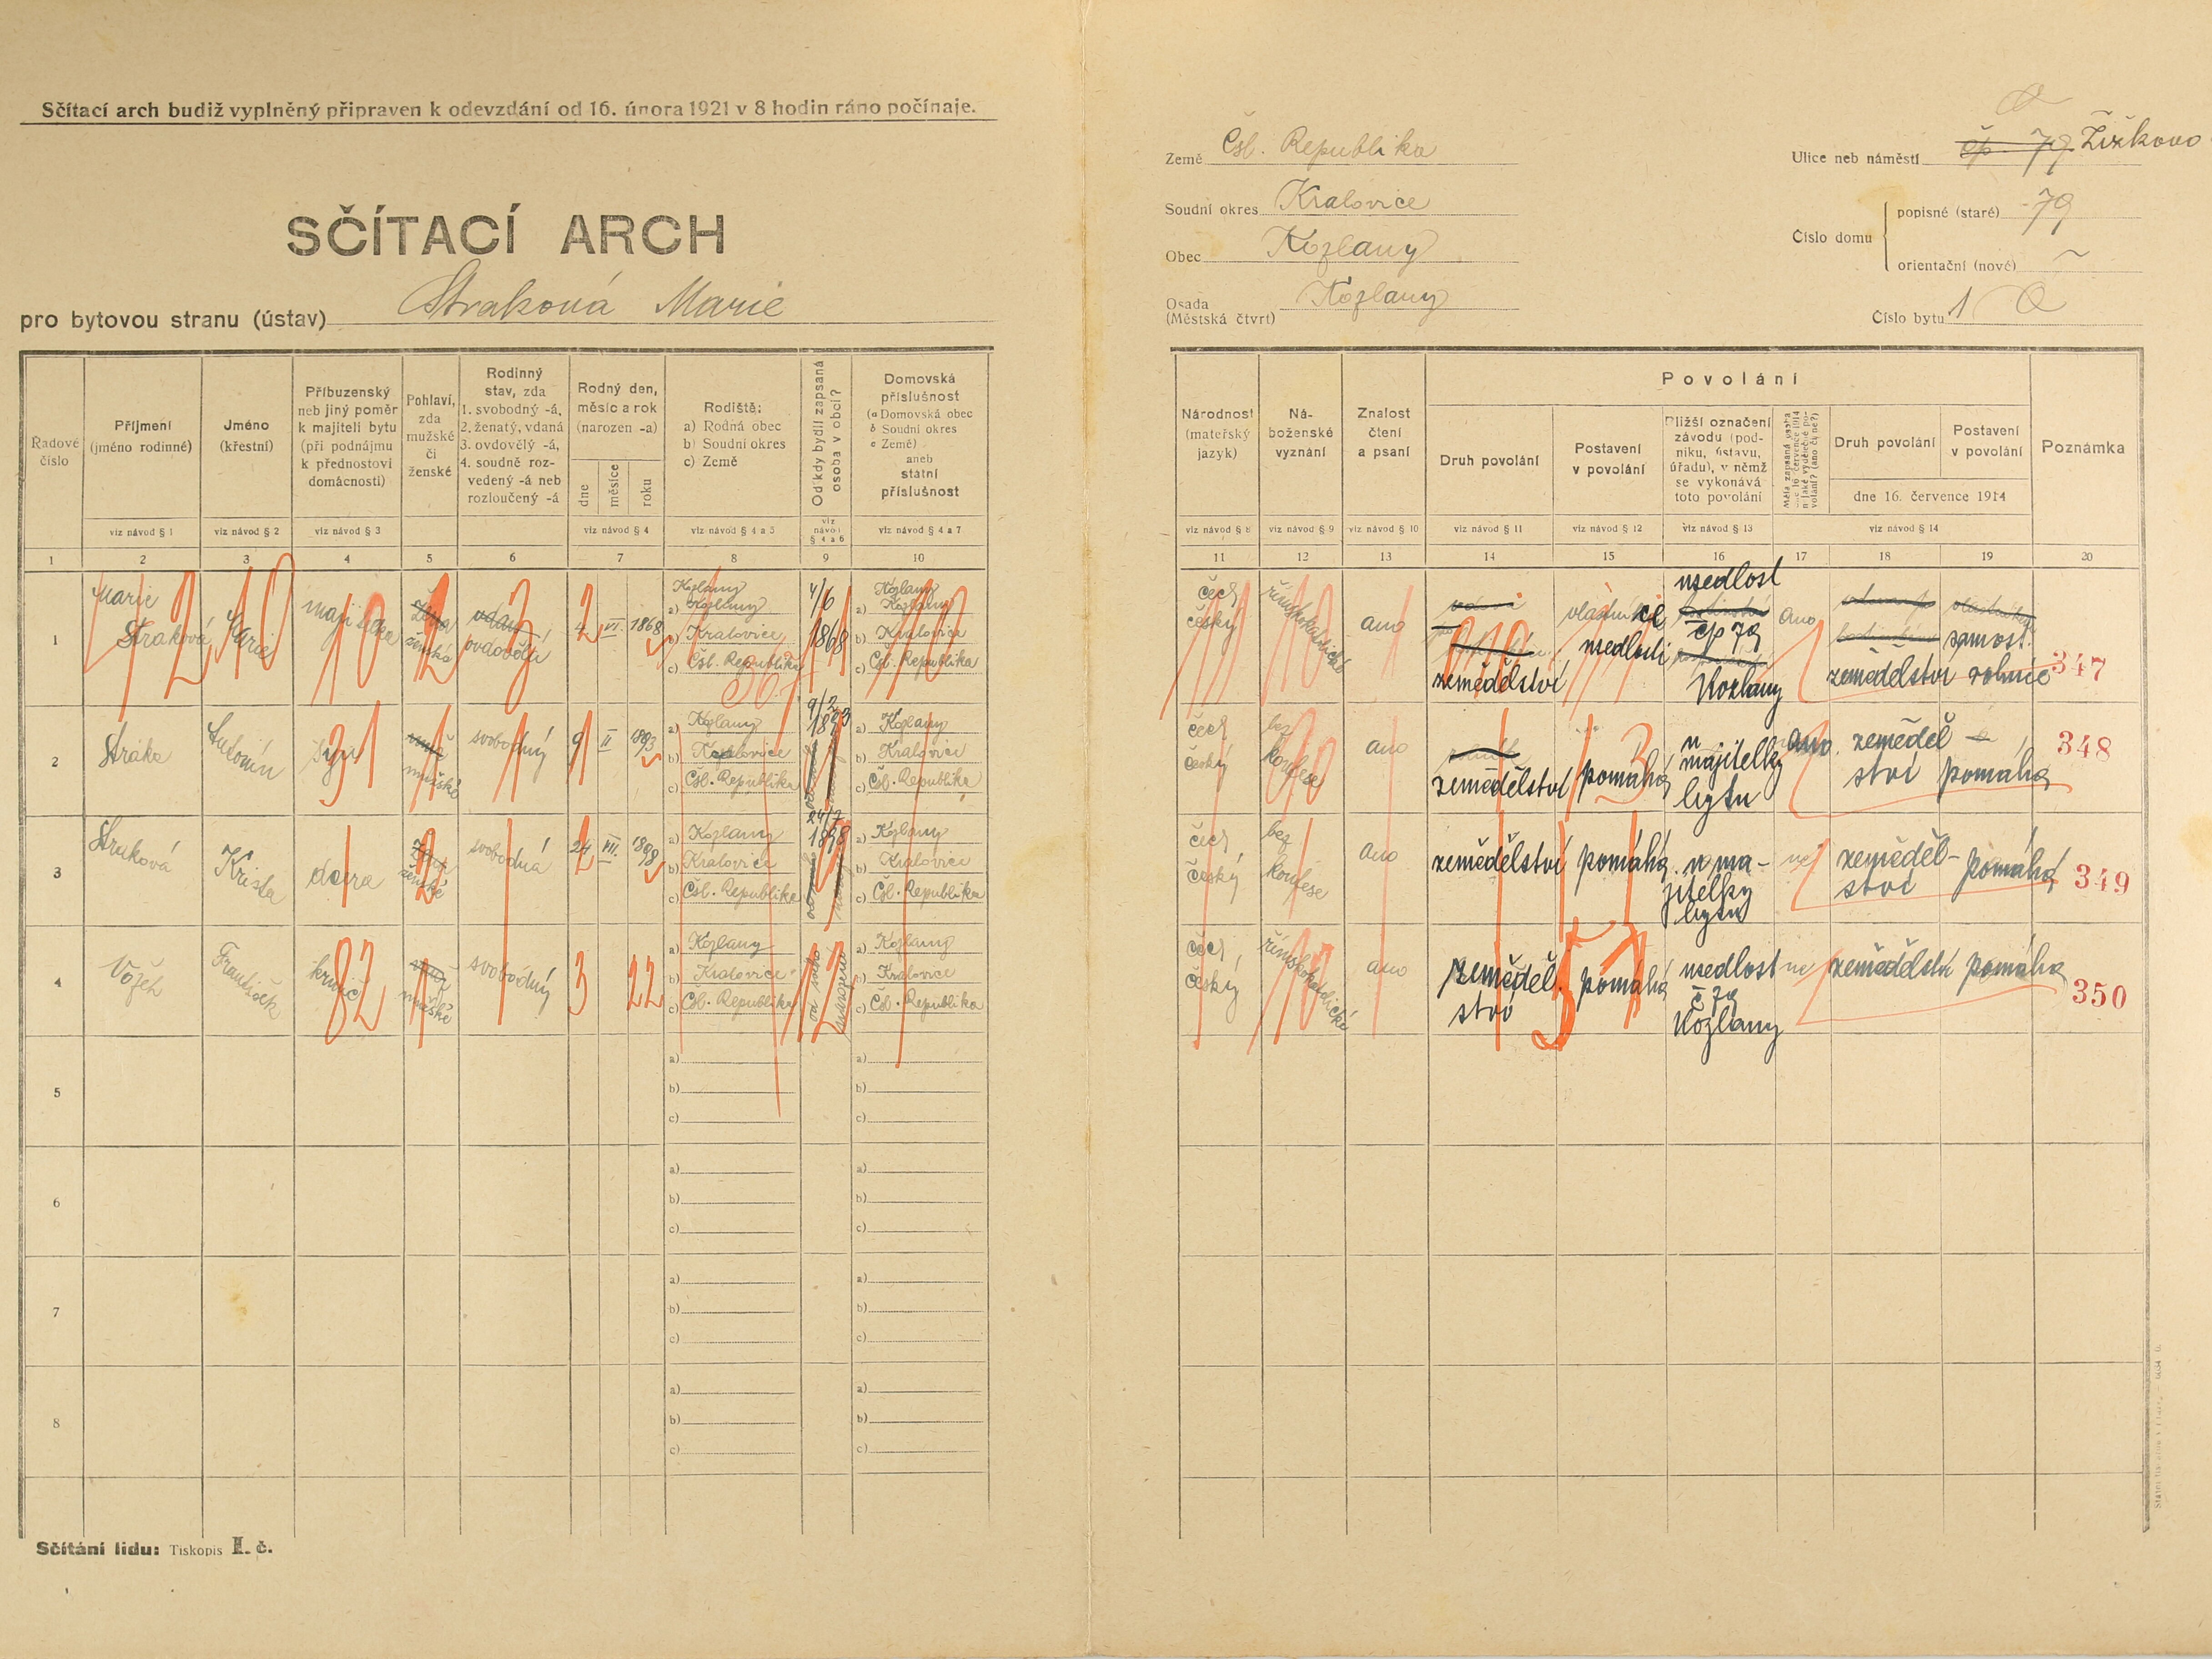 Sčítací arch budiž vyplněný připraven k odevzdání od 16. února 1921 v 8 hodin ráno počínaje.
SČÍTACÍ ARCH
pro bytovou stranu (ústav) Straková Marie
Země Čsl. Republika
Soudní okres Kralovice
Obec Kozlany
Osada Kozlany
(Městská čtvrt)
Ulice neb náměstí čp. 79 Žižkovo
Číslo domu
popisné (staré) 79
orientační (nové) ~
Číslo bytu 1
Řadové číslo
Příjmení (jméno rodinné)
Jméno (křestní)
Příbuzenský neb jiný poměr k majiteli bytu (při podnájmu k přednostovi domácnosti)
Pohlaví, zda mužské či ženské
Rodinný stav, zda 1. svobodný -á, 2. ženatý, vdaná 3. ovdovělý -á, 4. soudně rozvedený -á neb rozloučený -á
Rodný den, měsíc a rok (narozen -a)
dne
měsíce
roku
Rodiště:
a) Rodná obec
b) Soudní okres
c) Země
Od kdy bydlí zapsaná osoba v obci?
Domovská příslušnost
(a Domovská obec
b Soudní okres
c Země)
aneb státní příslušnost
Národnost (mateřský jazyk)
Náboženské vyznání
Znalost čtení a psaní
Povolání
Druh povolání
Postavení v povolání
Bližší označení závodu (podniku, ústavu, úřadu), v němž se vykonává toto povolání
Měla zapsaná osoba dne 16. července 1914 nějaké výdělečné povolání? (ano či ne?)
Druh povolání
Postavení v povolání
dne 16. července 1914
Poznámka
viz návod § 1
viz návod § 2
viz návod § 3
viz návod § 4
viz návod § 4 a 5
viz návod § 4 a 6
viz návod § 4 a 7
viz návod § 8
viz návod § 9
viz návod § 10
viz návod § 11
viz návod § 12
viz návod § 13
viz návod § 14
1 2 3 4 5 6 7 8 9 10 11 12 13 14 15 16 17 18 19 20
1
Marie
Straková
Marie
majitelka
žena
ženské
vdaná
ovdovělá
VI. 1868
Kozlany
a) Kozlany
b) Kralovice
c) Čsl. Republika
4/6
1868
Kozlany
a) Kozlany
b) Kralovice
c) Čsl. Republika
čech
český
římskokatolické
ano
zemědělství
vlastnice
usedlosti
usedlost
čp 79
Kozlany
ano
zemědělství
samost.
rolnice
347
2
Straka
Antonín
syn
mužské
svobodný
9 II 1893
a) Kozlany
b) Kralovice
c) Čsl. Republika
9/2
1893
a) Kozlany
b) Kralovice
c) Čsl. Republika
čech
český
bez
konfese
ano
zemědělství
pomáhá
u
majitelky
bytu
ano
zeměděl
ství
pomáhá
348
3
Straková
Krista
dcera
ženské
svobodná
24 VII. 1898
a) Kozlany
b) Kralovice
c) Čsl. Republika
24/7
1898
a) Kozlany
b) Kralovice
c) Čsl. Republika
čech,
český
bez
konfese
ano
zemědělství
pomáhá
u ma-
jitelky
bytu
ne
zeměděl-
ství
pomáhá
349
4
František
mužské
svobodný
3
22
a) Kozlany
b) Kralovice
c) Čsl. Republika
a) Kozlany
b) Kralovice
c) Čsl. Republika
čech,
český
římskokatolické
ano
zeměděl.
ství
pomáhá
usedlost
č 79
Kozlany
ne
zemědělství
pomáhá
350
5
a)
b)
c)
a)
b)
c)
6
a)
b)
c)
a)
b)
c)
7
a)
b)
c)
a)
b)
c)
8
a)
b)
c)
a)
b)
c)
Sčítání lidu: Tiskopis I. č.